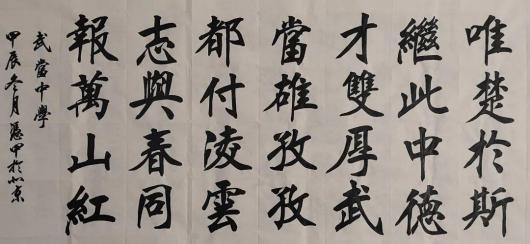 唯楚於斯
繼此中德
才雙厚武
當雄孜孜
都付淩雲
志與春同
報萬山紅
武當中學
甲辰冬月憑甲於北京